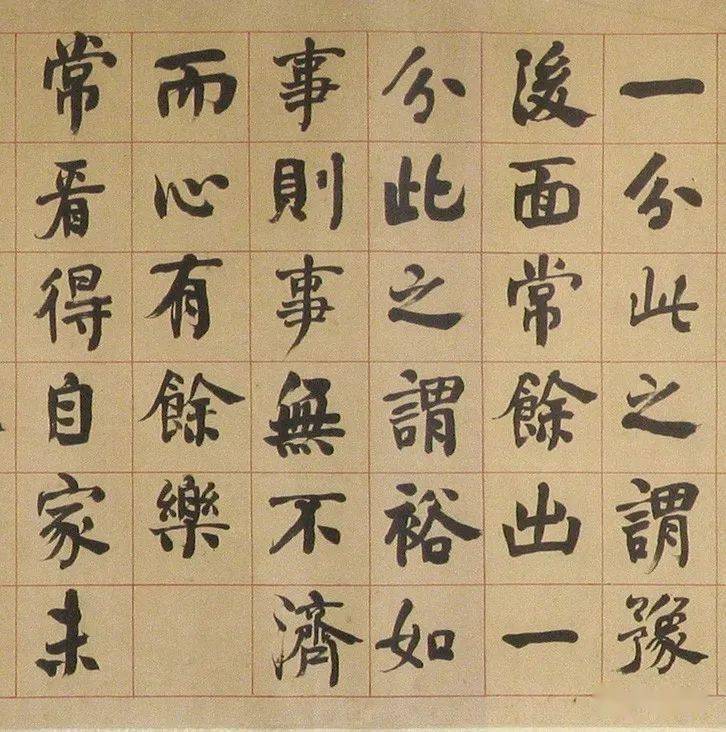 一分此之謂豫
後面常餘出一
分此之謂裕如
事則事無不濟
而心有餘樂
常看得自家未